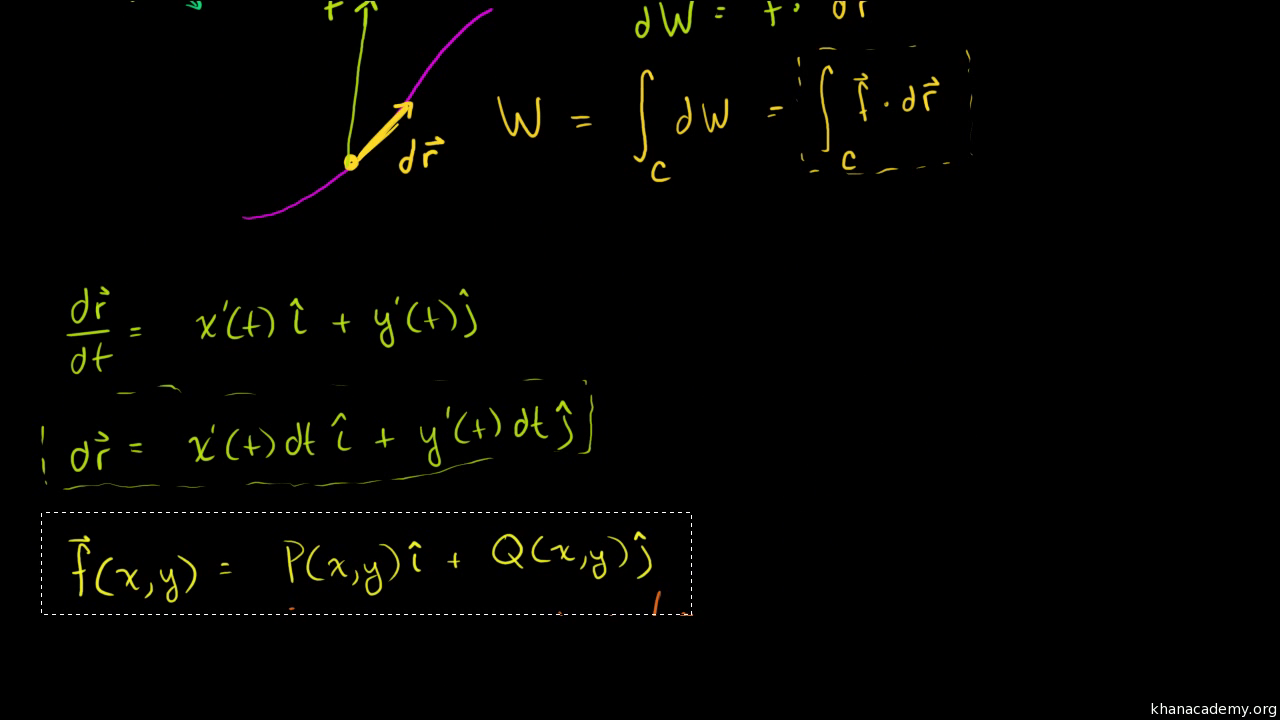 f
dW = f · dr
W = ∫_C dW = ∫_C f⃗ · dr⃗
dr⃗
dr⃗/dt = x'(t) î + y'(t) ĵ
dr⃗ = x'(t) dt î + y'(t) dt ĵ
f⃗(x,y) = P(x,y) î + Q(x,y) ĵ
khanacademy.org